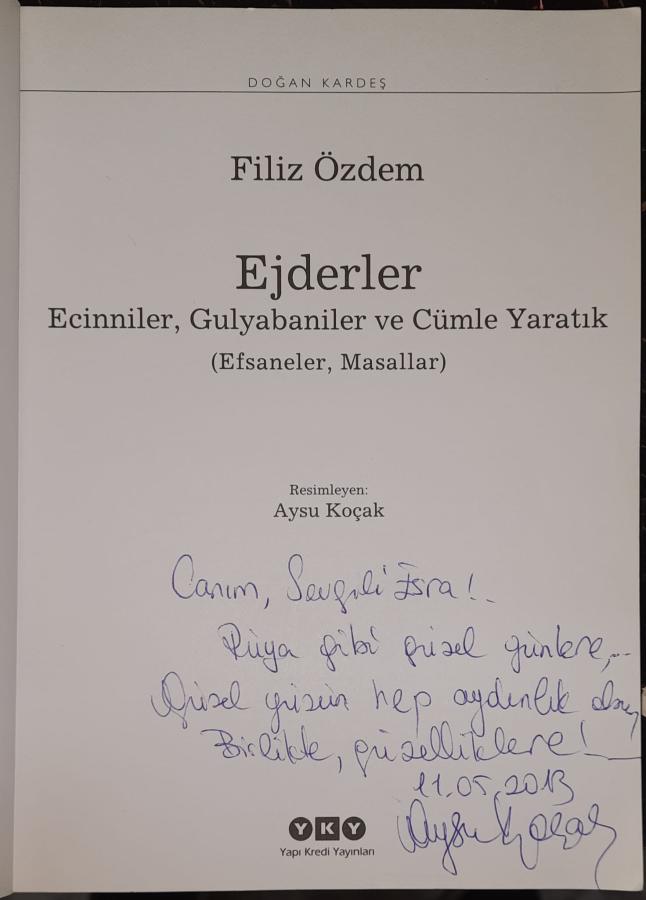 DOĞAN KARDEŞ
Filiz Özdem
Ejderler
Ecinniler, Gulyabaniler ve Cümle Yaratık
(Efsaneler, Masallar)
Resimleyen:
Aysu Koçak
Canım, Sevgili Esra!..
Rüya gibi güzel günlere,...
Güzel yüzün hep aydınlık olsun,
Birlikte, güzelliklere!
11.05.2013
Aysu Koçak
YKY
Yapı Kredi Yayınları